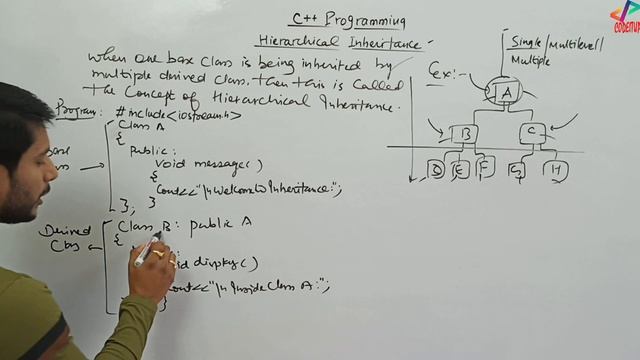 C++ Programming
Hierarchical Inheritance
CODEITUP
When one base class is being inherited by
multiple derived class. Then this is Called
the Concept of Hierarchical Inheritance.
Single/Multilevel/
Multiple
Ex:-
A
B
C
D E F G H
Program: #include<iostream.h>
Class A
{
public:
Void message()
{
Cout<<"\nWelcome to Inheritance:";
}
};
Class
Derived
Class
Class B: public A
{
display()
{
Cout<<"\nInside Class A:";
}